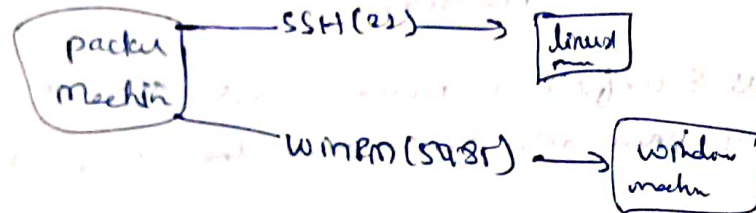 packer
Machin
SSH(22)
linux
WinRM(5985)
window
machin